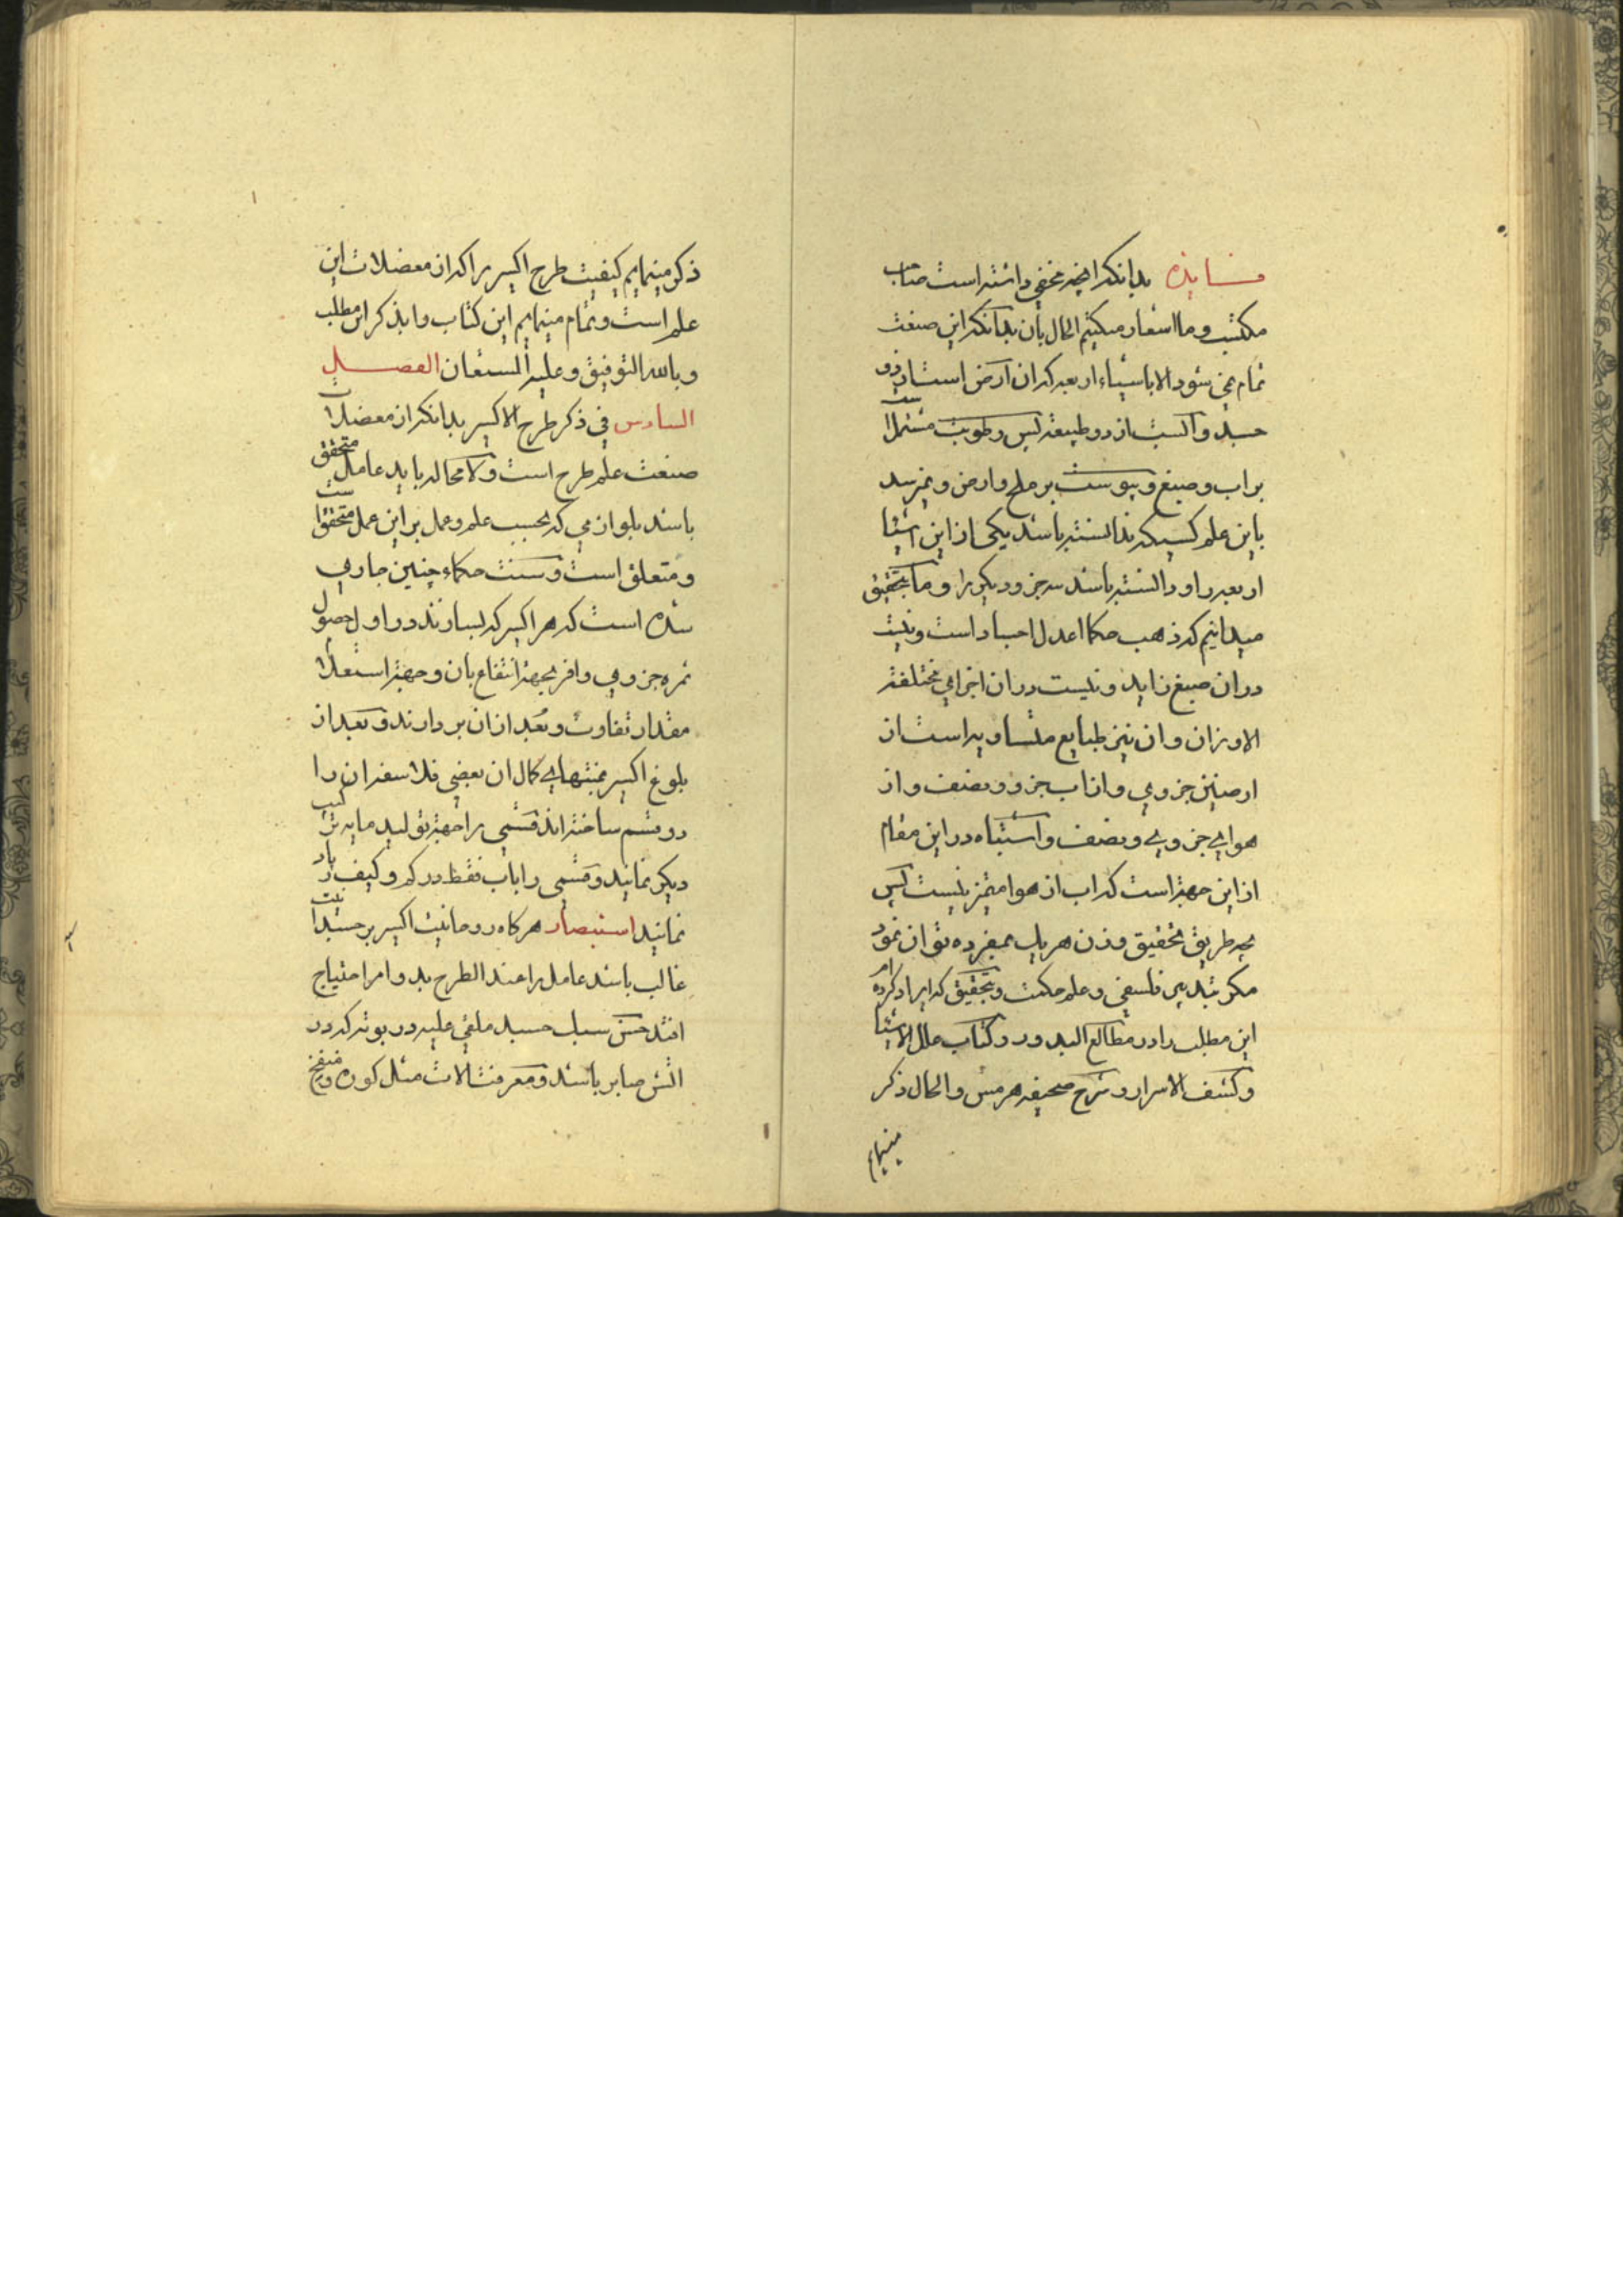 فائده بدانکه انچه مخفی داشته است صاحب
مکتسب و ما اشعار میکنیم الحال بآن بدآنکه این صنعت
تمام نمی شود الا باشیاء اربعه که ان ارض است و
جسد و آبست از دو طبیعة پس رطوبت مشتملست
بر اب و صبغ و یبوست بر ملح و ارض و نمیرسد
باین علم کسیکه ندانسته باشد یکی از این اشیا
اربعه را و دانسته باشد سه جزو دیکر را و ما بتحقیق
میدانیم که ذهب حکما اعدل اجساد است و نیست
در ان صبغ زاید و نیست در ان اجزای مختلفة
الاوزان و ان نیز طبایع متساویه است از
ارضین جزوی و از اب جزو و نصف و از
هوای جزوی و نصف و اشتباه در این مقام
از این جهة است که اب از هوا متمیز نیست پس
بچه طریق تحقیق وزن هریک بمفرده توان نمود
مکر بتدبیر فلسفی و علم حکمت و بتحقیق که ایراد کرده ام
این مطلب را در مطالع البدور و کتاب علل الاشیا
و کشف الاسرار و شرح صحیفه هرمس و الحال ذکر
مینمایم
ذکر مینمایم کیفیت طرح اکسیر را که از معضلات این
علم است و تمام مینمایم این کتاب را بذکر این مطلب
و بالله التوفیق و علیه المستعان الفصل
السادس فی ذکر طرح الاکسیر بدانکه از معضلات
صنعت علم طرح است و لا محاله باید عامل متحقق
باشد بلوازمی که بحسب علم و عمل بر این عمل متحققست
و متعلق است و سنت حکماء چنین جاری
شده است که هر اکسیر که بسازند در اول حصول
ثمره جزوی وافر بجهة انتفاع بان و جهة استعلام
مقدار تفاوت و بُعد از ان بردارند و بعد از
بلوغ اکسیر بمنتهای کمال ان بعضی فلاسفه ان را
دو قسم ساخته اند قسمی را جهة تولید مایه ترکیب
دیکر نمانید و قسمی را باب فقط در کم و کیف زیاد
نمانید استبصار هرکاه روحانیت اکسیر بر جسدانیت
غالب باشد عامل را عند الطرح بدو امر احتیاج
افتد حسن سبک جسد ملقی علیه در بوته که در
اتش صابر باشد و معرفت الات مثل کوره و منفخ